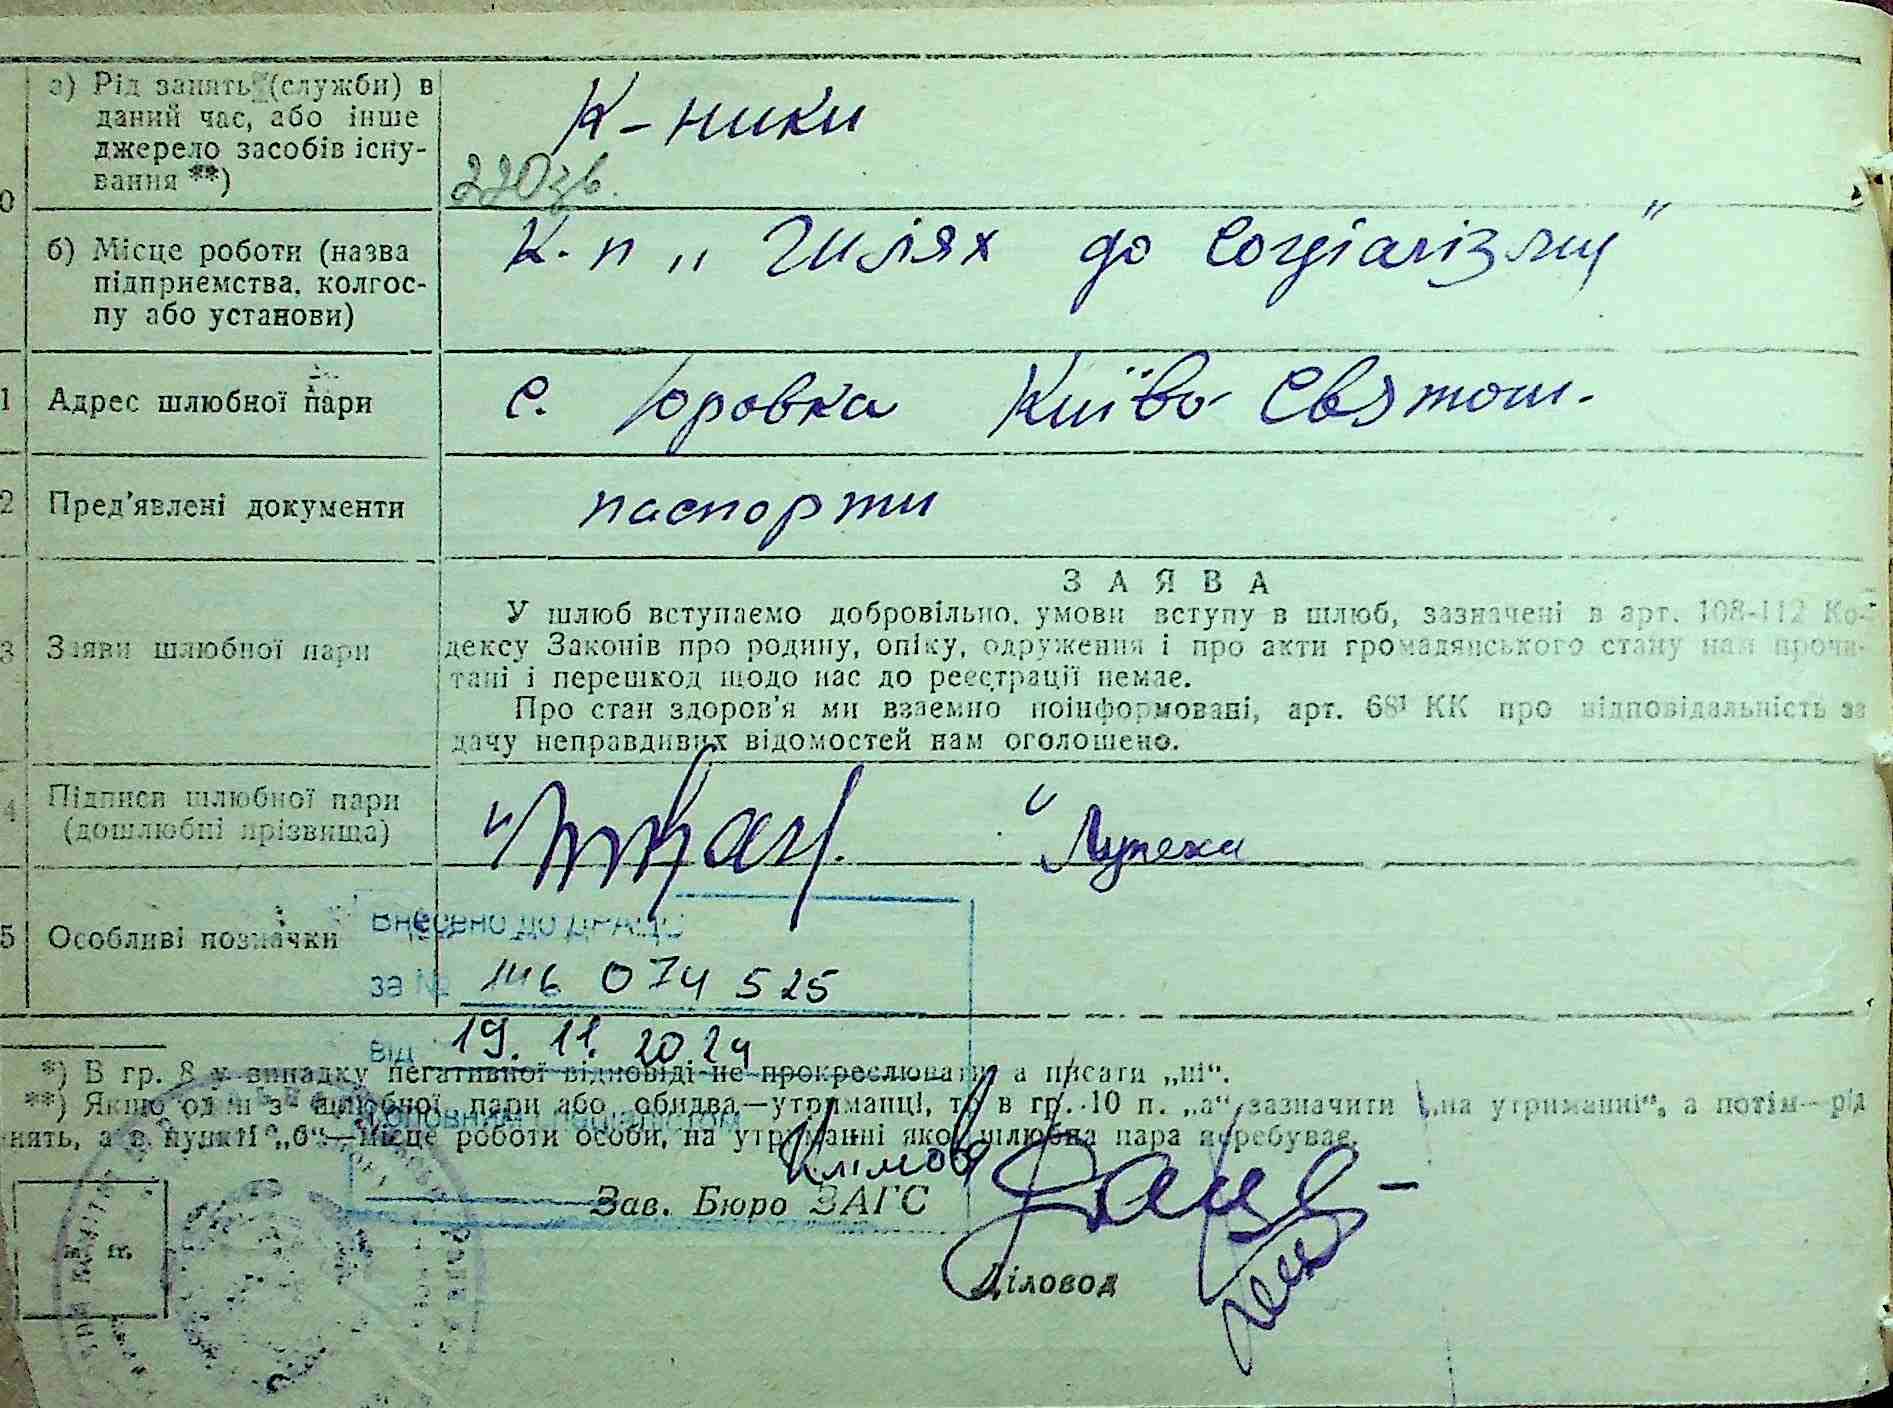 а) Рід занять (служби) в
даний час, або інше
джерело засобів існу-
вання **)
К-ники
220зв.
0
б) Місце роботи (назва
підприємства, колгос-
пу або установи)
к.-п „Шлях до Соціалізму"
1 Адрес шлюбної пари
с. Юровка Київо-Святош.
2 Пред'явлені документи
паспорти
3 Заяви шлюбної пари
ЗАЯВА
У шлюб вступаємо добровільно, умови вступу в шлюб, зазначені в арт. 108-112 Ко-
дексу Законів про родину, опіку, одруження і про акти громадянського стану нам прочи-
тані і перешкод щодо нас до реєстрації немає.
Про стан здоров'я ми взаємно поінформовані, арт. 68¹ КК про відповідальність за
дачу неправдивих відомостей нам оголошено.
4 Підписи шлюбної пари
(дошлюбні прізвища)
5 Особливі позначки
Внесено до ДРАЦС
за № 146 074 525
від 19.11.2024
*) В гр. 8 у випадку негативної відповіді не прокреслювати а писати „ні“.
**) Якщо один з шлюбної пари або обидва—утриманці, то в гр. 10 п. „а“ зазначити „на утриманні“, а потім—рід
нять, а в пункті „б“—місце роботи особи, на утриманні якої шлюбна пара перебуває.
Головним спеціалістом
Клімов
Зав. Бюро ЗАГС
Діловод